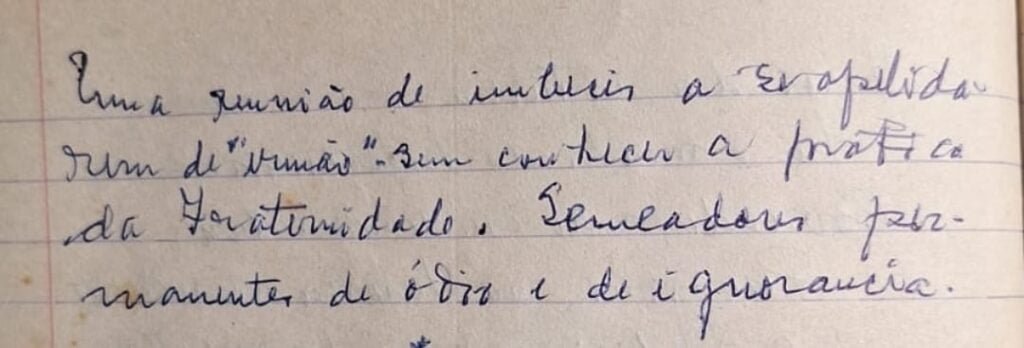 Uma reunião de imbecis a se apelida-
rem de "irmão" - sem conhecer a prática
da Fraternidade. Semeadores per-
manentes de ódio e de ignorancia.